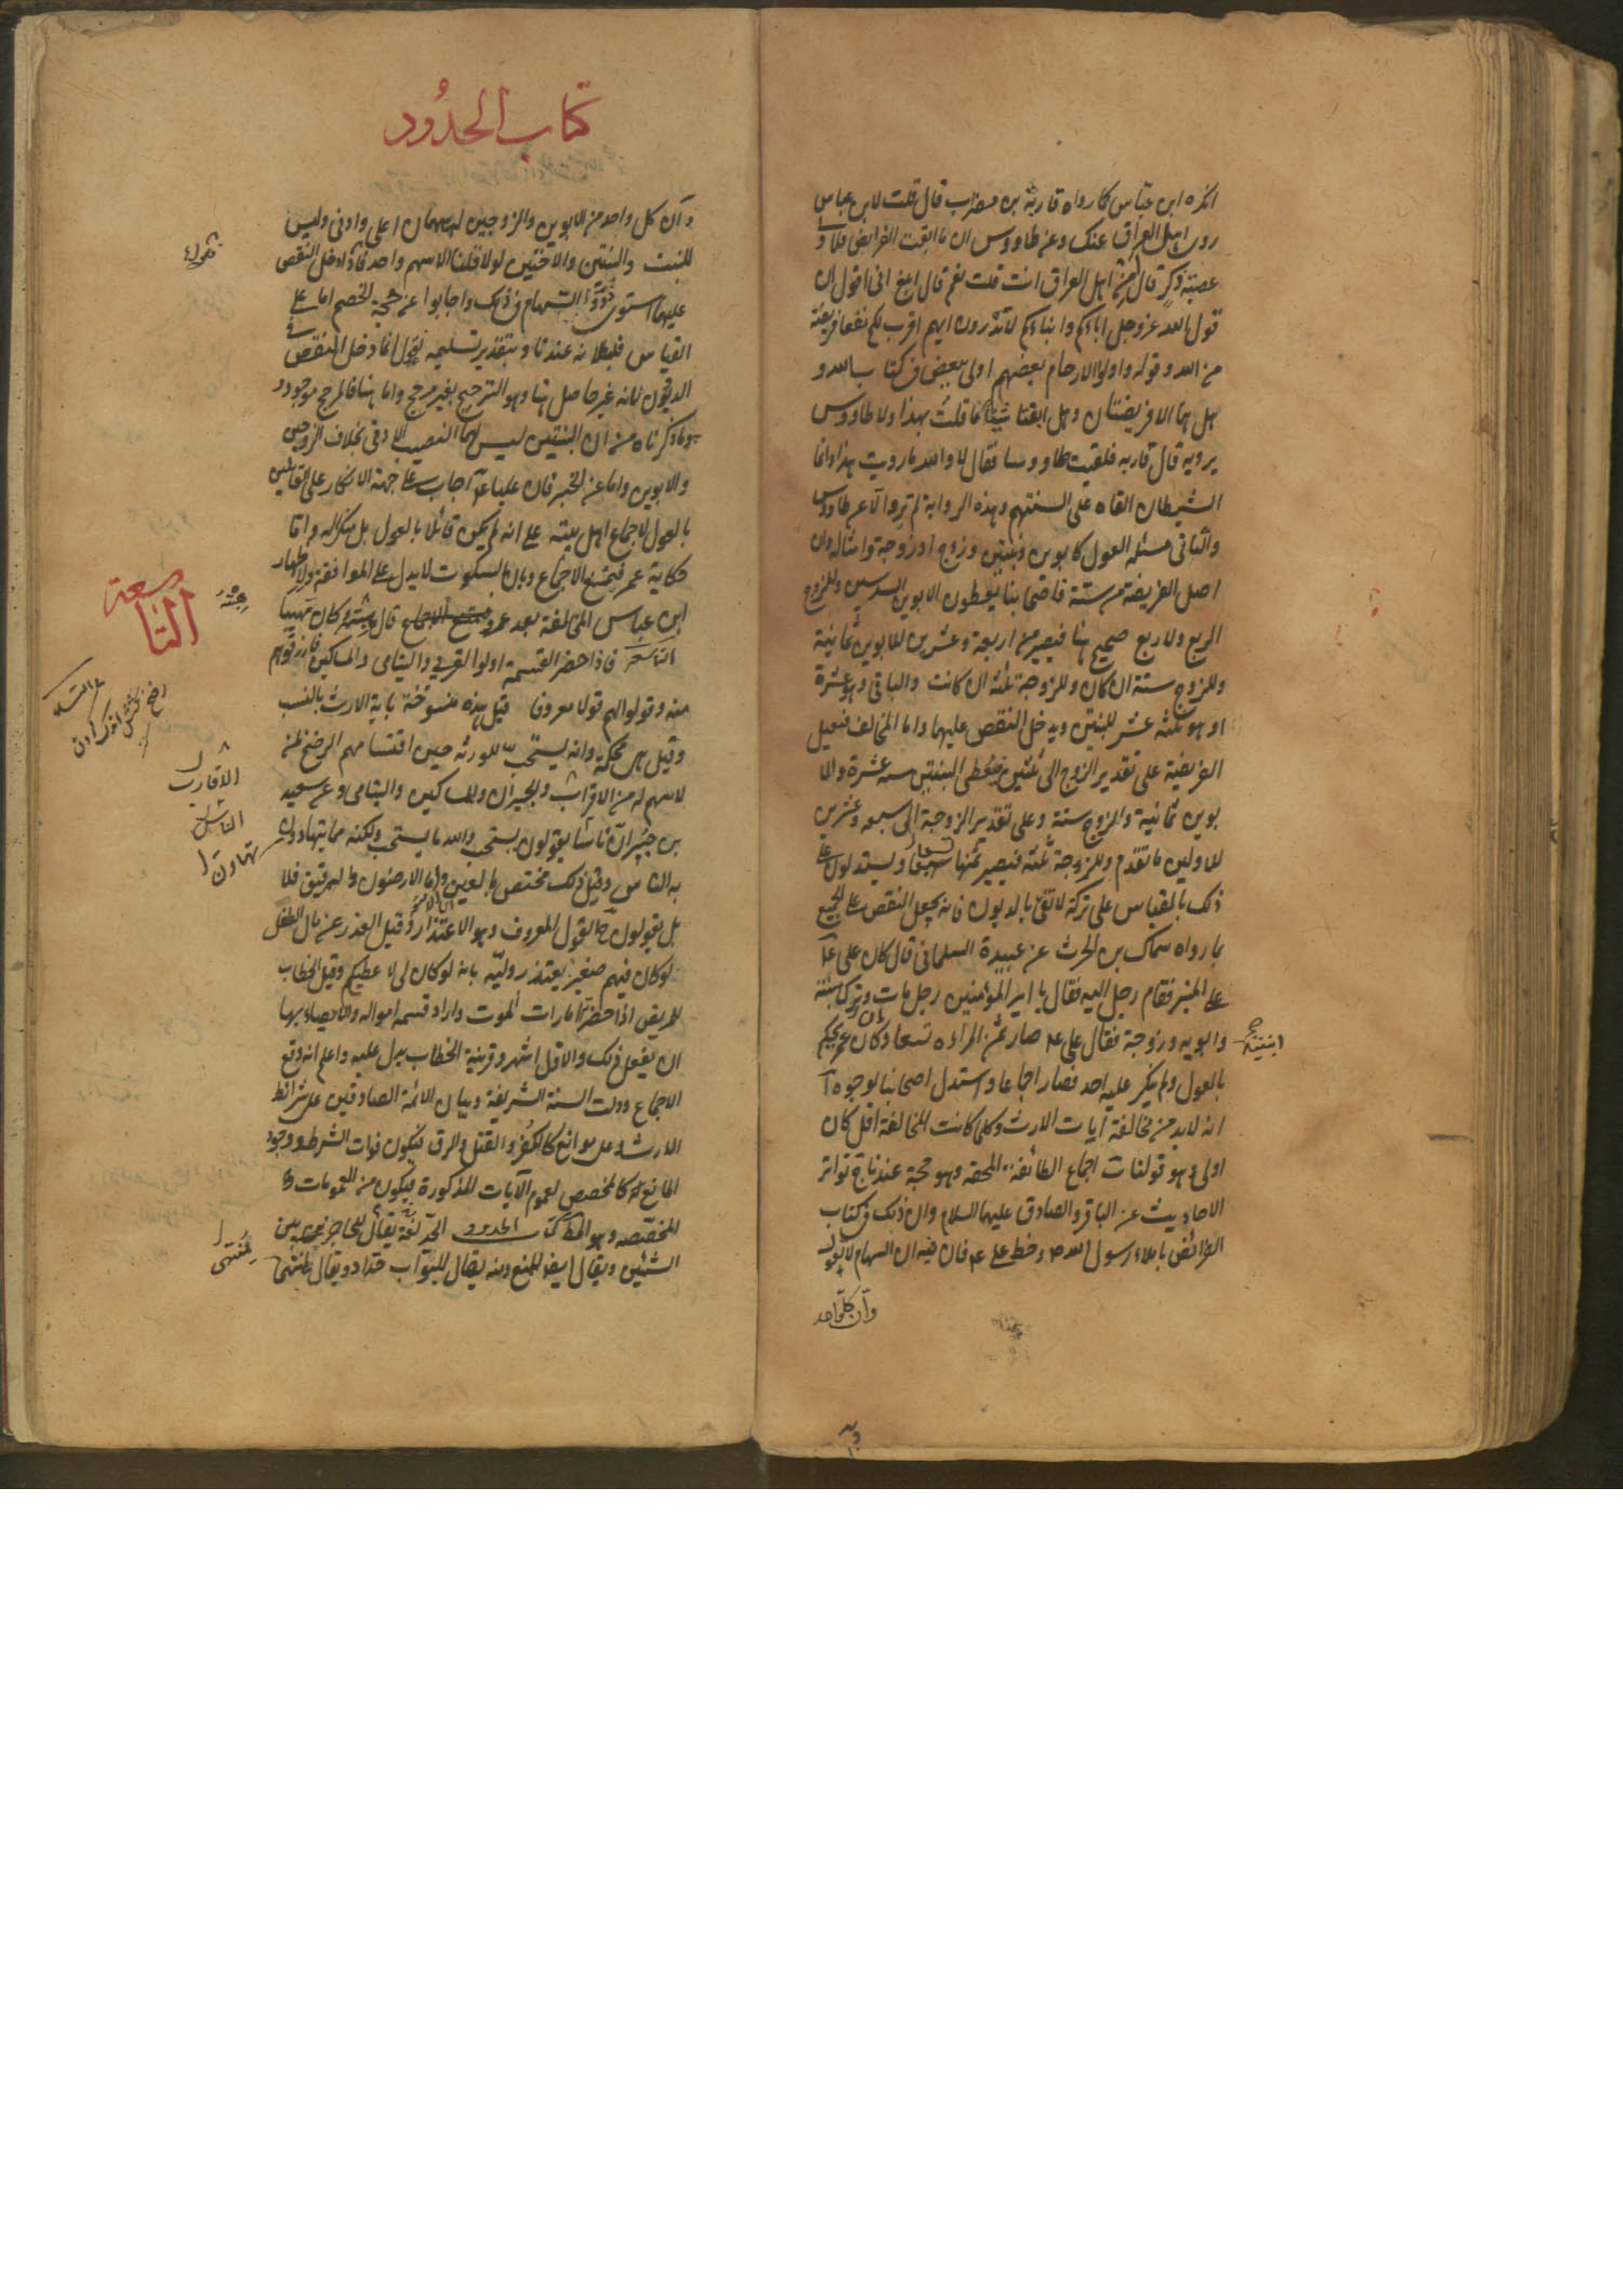 انكره ابن عباس كما رواه قاربة بن مضراب قال قلت لابن عباس
روى اهل العراق عنك وعن طاووس ان ما ابقت الفرائض فلاولى
عصبة ذكر قال من اهل العراق انت قلت نعم قال ابلغ انى اقول ان
قول الله عز وجل اباؤكم وابناؤكم لا تدرون ايهم اقرب لكم نفعا فريضة
من الله وقوله واولوا الارحام بعضهم اولى ببعض فى كتاب الله و
هل هما الا فريضتان وهل ابقتا شيئا ما قلت بهذا ولا طاووس
يرويه قال قاربه فلقيت طاووسا فقال لا والله ما رويت هذا وانما
الشيطان القاه على السنتهم وهذه الرواية لم ترو الا عن طاووس
والثانى مسئله العول كابوين وبنتين وزوج او زوجة وامثاله وان
اصل الفريضة من ستة فاصحابنا يعطون الابوين السدسين وللزوج
الربع ولا ربع صحيح هنا فيصير من اربعة وعشرين للابوين ثمانية
وللزوج ستة ان كان وللزوجة ثلثه ان كانت والباقى وهو عشرة
او هو ثلثه عشر للبنتين ويدخل النقص عليهما واما المخالف فيعيل
الفريضة على تقدير الزوج الى ثلثين فيعطى البنتين سته عشرة والا
بوين ثمانية والزوج ستة وعلى تقدير الزوجة الى سبعه وعشرين
للاولين ما تقدم وللزوجة ثلثه فيصير ثمنها تسعا ويستدلون على
ذلك بالقياس على تركة لا تفى بالديون فانه يجعل النقص على الجميع
بما رواه سماك بن الحرث عن عبيدة السلمانى قال كان على ع
على المنبر فقام رجل اليه فقال يا امير المؤمنين رجل مات وترك ابنتيه
وابويه وزوجة فقال على ع صار ثمن المراه تسعا وكان عمر يحكم
بالعول ولم ينكر عليه احد فصار اجماعا واستدل اصحابنا بوجوه آ
انه لابد من مخالفة آيات الارث وكلما كانت المخالفة اقل كان
اولى وهو قولنا ب اجماع الطائفة المحقه وهو حجة عندنا ج تواتر
الاحاديث عن الباقر والصادق عليهما السلام وان ذلك فى كتاب
الفرائض باملاء رسول الله ص وخط على ع فان فيه ان السهام لا تعول
وآن كل واحد
ابنتيه
كتاب الحدود
د آن كل واحد من الابوين والزوجين له سهمان اعلى وادنى وليس
للبنت والبنتين والاختين لولا قلنا الا سهم واحد فاذا دخل النقص
عليهما استوى ذووا السهام فى ذلك واجابوا عن حجة الخصم اما على
القياس فبطلانه عندنا وبتقدير تسليمه نقول انما دخل النقص فى
الديون لانه غير حاصل هنا وهو الترجيح بغير مرجح واما هنا فالمرجح موجود و
هو ما ذكرناه من ان البنتين ليس لهما النصيب الادنى بخلاف الزوجين
والابوين واما عن الخبر فان عليا ع اجاب على جهة الانكار على القائلين
بالعول لاجماع اهل بيته على انه لم يكن قائلا بالعول بل منكرا له واما
حكاية عمر فيمنع الاجماع وبان السكوت لا يدل على الموافقة ولاظهار
ابن عباس المخالفة بعد عمر يمنع الاجماع قال هبته وكان مهيبا
التاسعة فاذا حضر القسمة اولوا القربى واليتامى والمساكين فارزقوهم
منه وقولوا لهم قولا معروفا قيل هذه منسوخة باية الارث بالنسب
وقيل بل محكمة وانه يستحب للورثه حين اقتسامهم الرضخ لمن
لا سهم له من الاقارب والجيران والمساكين واليتامى وعن سعيد
بن جبير ان ناسا يقولون يستحب والله ما يستحب ولكنه مما يتهاون
به الناس وقيل ذلك مختص بالعين واما الارضون والرقيق فلا
بل يقولون ح القول المعروف وهو الاعتذار وقيل العذر عن مال الطفل
لو كان فيهم صغير يعتذر وليه بانه لو كان لى لاعطيكم وقيل الخطاب
للمريض اذا حضرته امارات الموت واراد قسمه امواله والايصاء بها
ان يفعل ذلك والاول اشهر وقرينة الخطاب يدل عليه واعلم انه وقع
الاجماع ودلت السنة الشريفة وبيان الائمة الصادقين على شرائط
الارث وعلى موانع كالكفر والقتل والرق فيكون فوات الشرط ووجود
المانع كالمخصص لعموم الآيات المذكورة فيكون من العمومات
المخصصه وهو المط كتاب الحدود الحد لغة يقال للحاجز بين
الشيئين ويقال ايضا للمنع ومنه يقال للبواب حداد ويقال لمنتهى
نقول
هيبته
التاسعة
رضخ
الاقارب
الناس
تهاون
منتهى